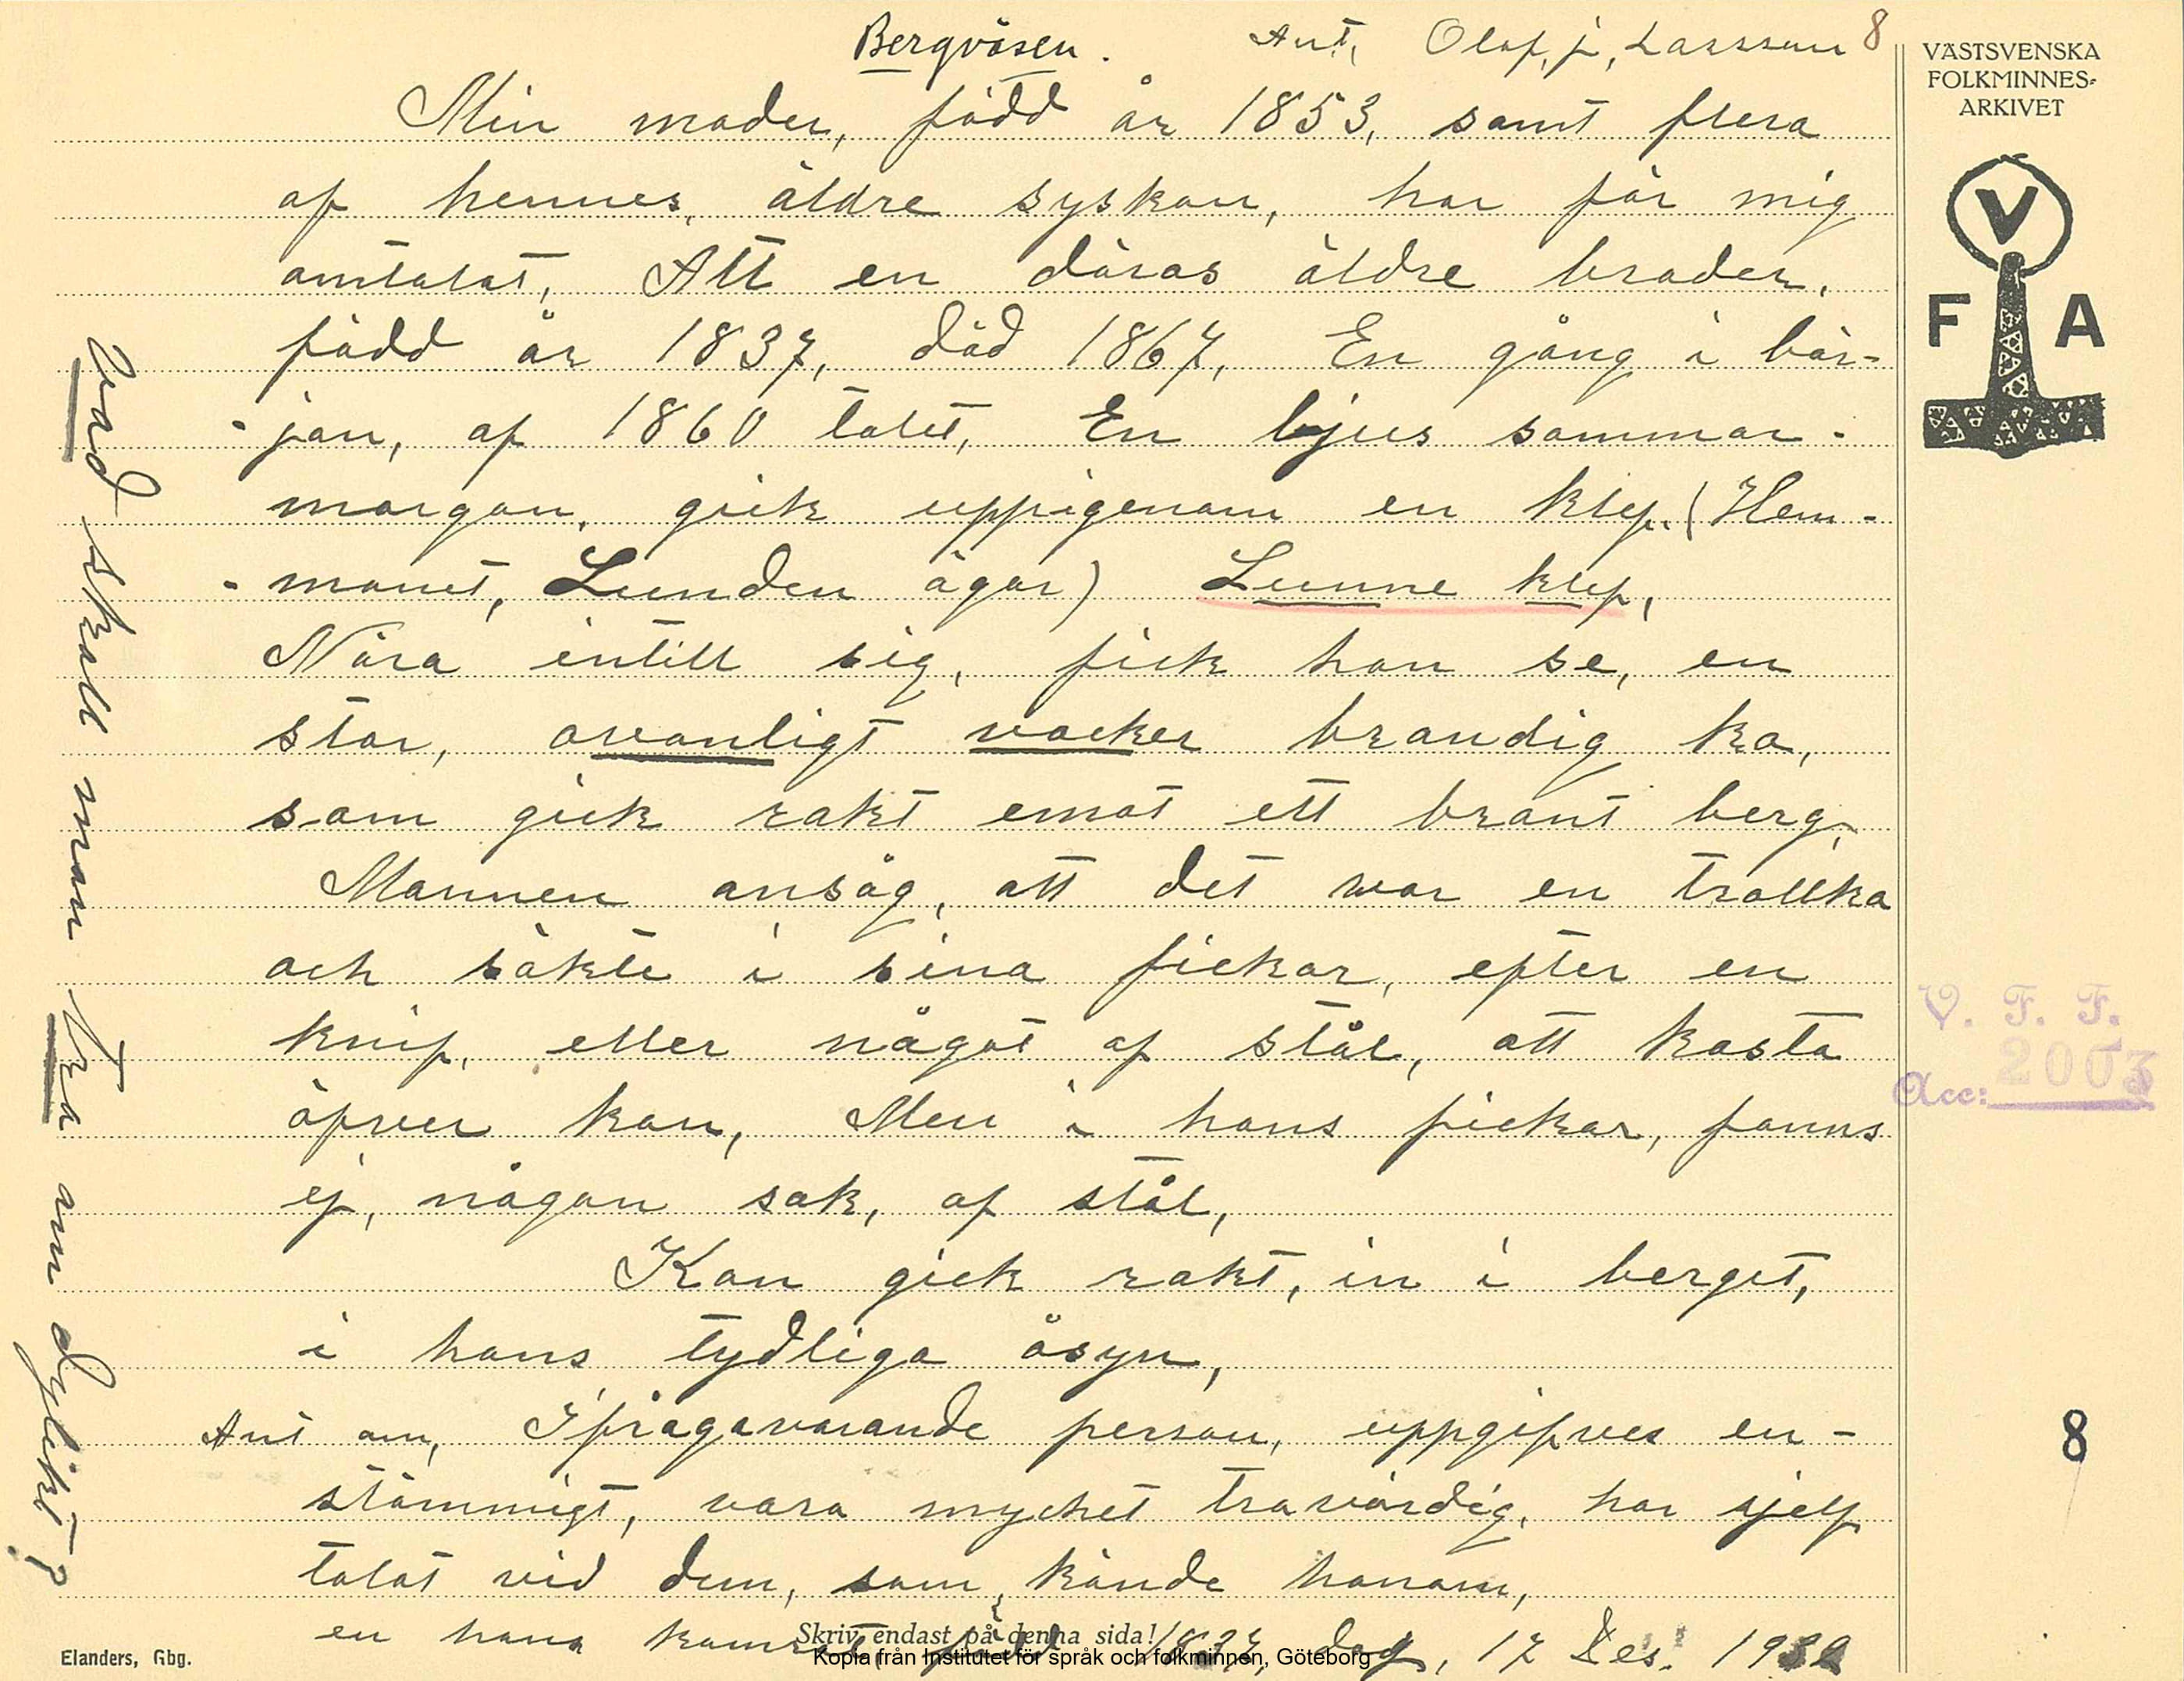 Bergväsen. Ant, Olof, j, Larsson 8
Min moder, född år 1853, samt flera
af hennes, äldre syskon, har för mig
omtalat, Att en däras äldre broder,
född år 1837, död 1867, En gång i bör-
-jan, af 1860 talet, En ljus sommar-
morgon, gick uppigenom en klef, (Hem-
-manet, Lunden ägor) Lunne klef,
Nära intill sig, fick han se, en
stor, ovanligt vacker brandig ko,
som gick rakt emot ett brant berg,
Mannen ansåg, att det war en trollko
och sökte i sina fickor, efter en
knif, eller något af stål, att kasta
öfver kon, Men i hans fickor, fanns
ej, någon sak, af stål,
Kon gick rakt, in i berget,
i hans tydliga åsyn,
Ant om, Ifrågavarande person, uppgifves en-
stämmigt, vara mycket trovärdig, har sjelf
talat vid dem, som, kände honom,
en hans kamrat, född 1837, dog, 17 Des. 1932
Vad skall man tro om dylikt?
VÄSTSVENSKA
FOLKMINNES-
ARKIVET
V
F A
V. F. F.
Acc: 2003
8
Skriv endast på denna sida!
Elanders, Gbg.
Kopia från Institutet för språk och folkminnen, Göteborg